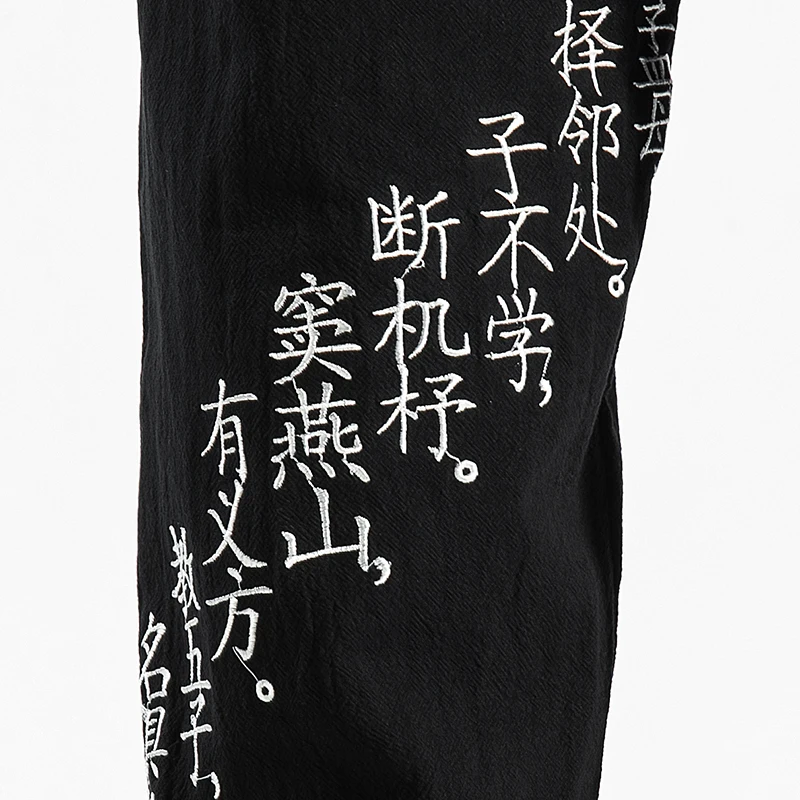 孟母,
择邻处。
子不学,
断机杼。
窦燕山,
有义方。
教五子,
名俱